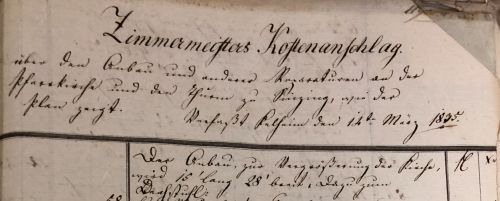 Zimmermeisters Kostenanschlag.
über den Anbau und anderer Reparaturen an der
Pfarrkirche und den Thurm zu Sinzing, wie der
Plan zeigt. Verfaßt Kelheim den 14t. März 1835.
Der Anbau, zur Vergrößerung der Kirche, fl
wird 15' lang 28' breit, dazu zum
Dachstuhl: